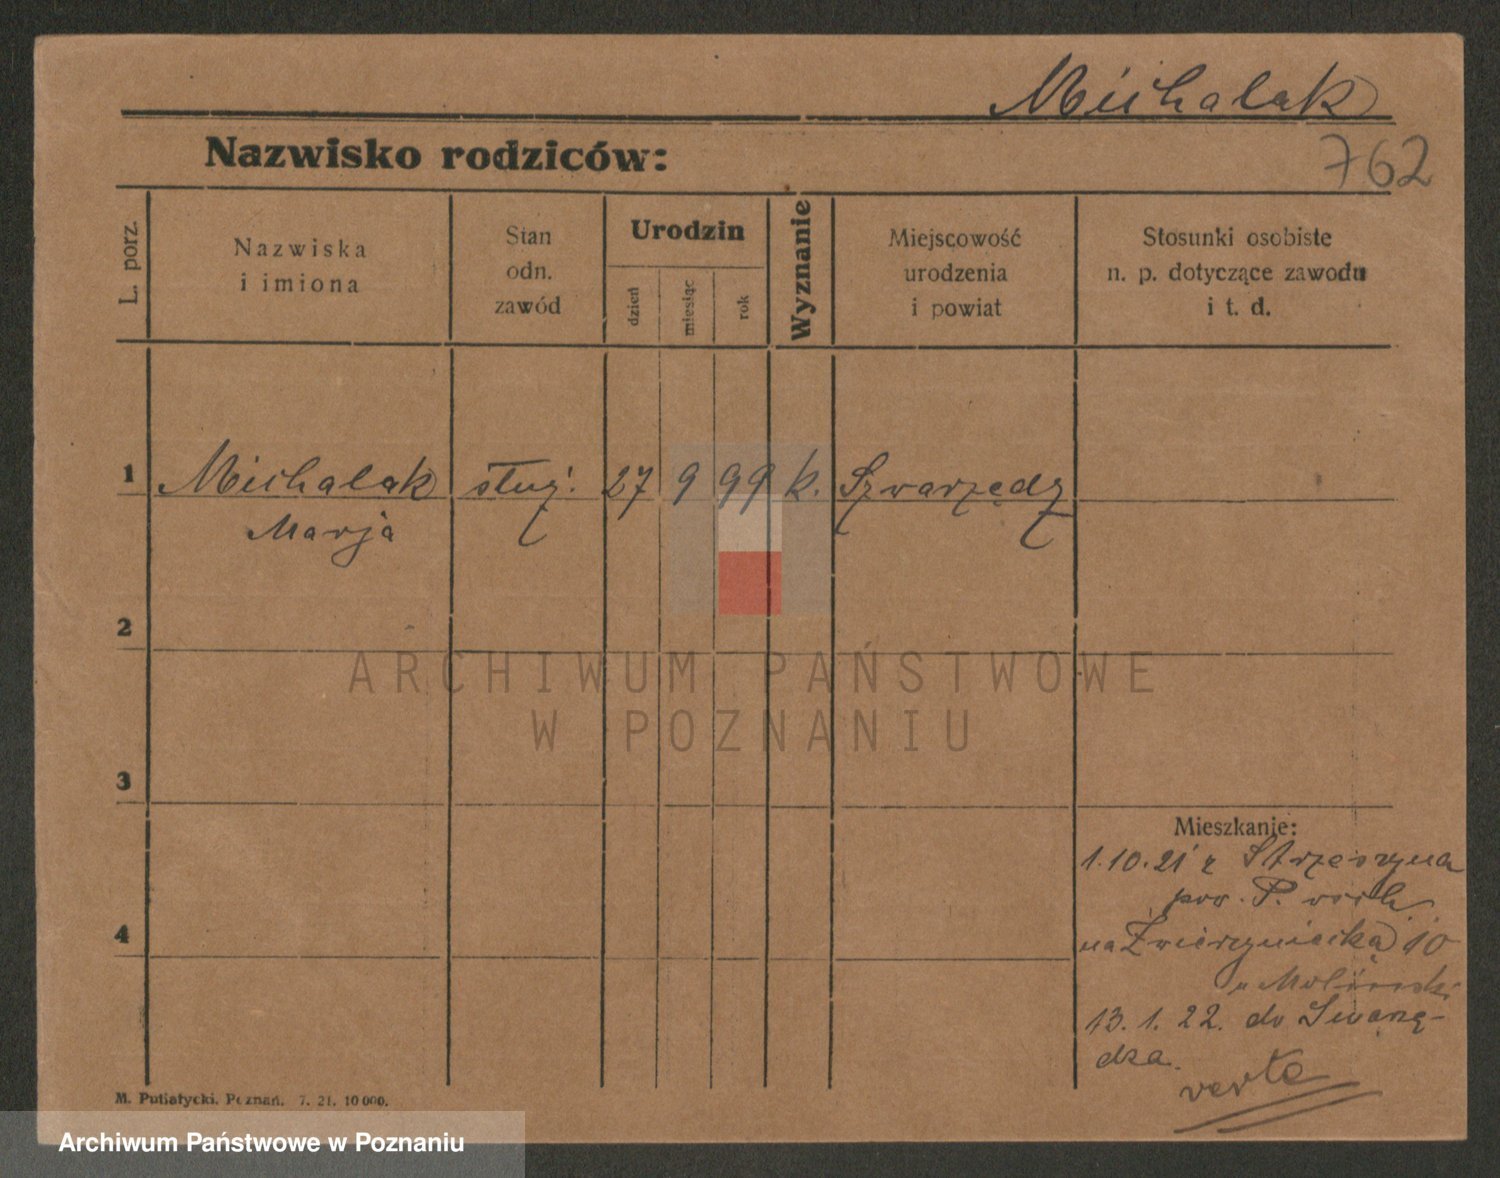 Michalak
762
Nazwisko rodziców:
L. porz.
Nazwiska
i imiona
Stan
odn.
zawód
Urodzin
dzień
miesiąc
rok
Wyznanie
Miejscowość
urodzenia
i powiat
Stosunki osobiste
n. p. dotyczące zawodu
i t. d.
1 Michalak służ. 27 9 99 k. Szwarzędz
Marja
2
ARCHIWUM PAŃSTWOWE
W POZNANIU
3
Mieszkanie:
1.10.21 z Strzeszyna
pow. P. wsch
4
na Zwierzyniecką 10
u Moliński
13.1.22. do Swarzę-
dza.
verte
M. Putiatycki. Poznań. 7. 21. 10000.
Archiwum Państwowe w Poznaniu